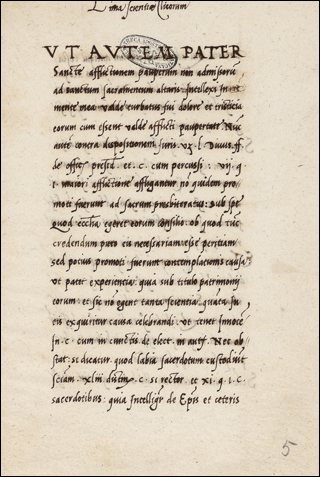 VT AVTEM PATER
Sancte afflictionem pauperum non admissoru
ad sanctum sacramentum altaris intellexi in
mente mea valde turbatus fui dolore et tristicia
eorum cum essent valde afflicti paupertate
contra dispositionem iuris
de offic presid. et. c. cum percussi . vij. q
i. maiori afflictione affligantur no quidem pro
moti fuerunt ad sacrum presbiteratus: sub spe
quod eccha egeret eorum consilio. ob quod
credendum puto eis necessariam esse peritiam
sed potius promoti fuerunt contemplationis causa
vt patet experiencia. quia sub titulo patrimonij
eorum. et sic no egent tanta scientia, quata
eis exquiritur causa celebrandi. vt tenet Innoce
in. c. cum in cunctis de elect. in anti. Nec ob
stat. si dicatur. quod labia sacerdotum custodiut
sciam. xliij distin. c. si rector. et xi. q. i. c.
sacerdotibus. quia intelligr de Epis et ceteris
5